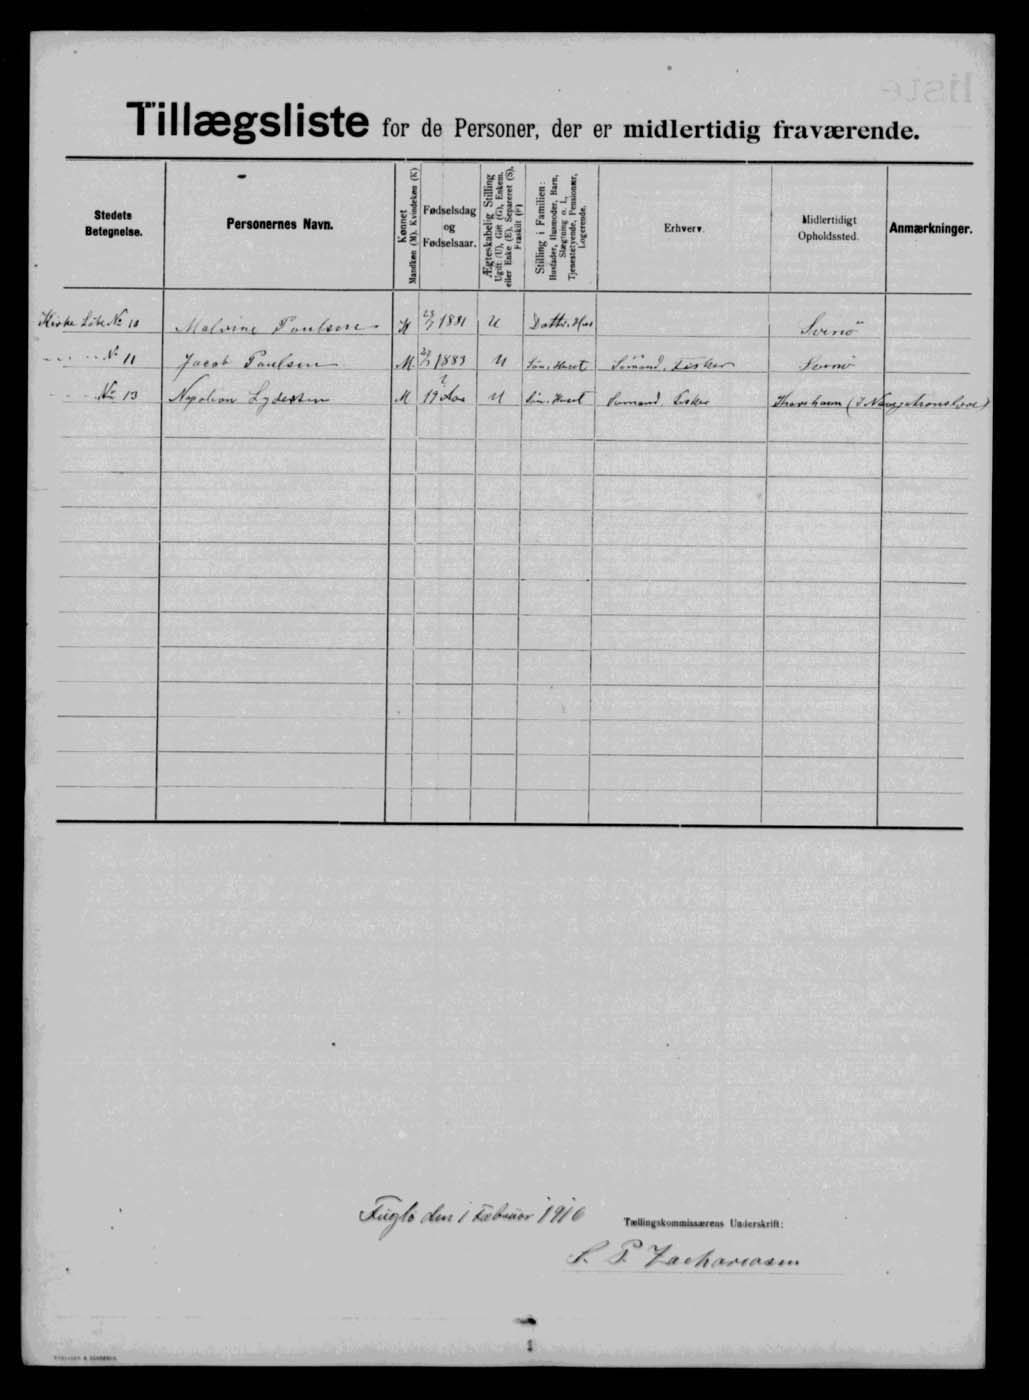 Tillægsliste for de Personer, der er midlertidig fraværende.
Stedets Betegnelse.
Personernes Navn.
Kønnet
Mandkøn (M). Kvindekøn (K)
Fødselsdag
og
Fødselsaar.
Ægteskabelig Stilling
Ugift (U), Gift (G), Enkem.
eller Enke (E), Separeret (S),
Fraskilt (F)
Stilling i Familien:
Husfader, Husmoder, Barn,
Slægtning o. l.,
Tjenestetyende, Pensionær,
Logerende.
Erhverv.
Midlertidigt
Opholdssted.
Anmærkninger.
Kirke No 10 Malvine Poulsen K 1881 U Svinø
No 11 Jacob Poulsen M 1883 U Søn i Huset Sömand, Fisker Svinø
No 13 Napoleon M 19 Aar U Søn i Huset Sømand, Fisker Thorshavn
Fuglø den 1 Februar 1916
Tællingskommissærens Underskrift:
S. P. Zachariasen